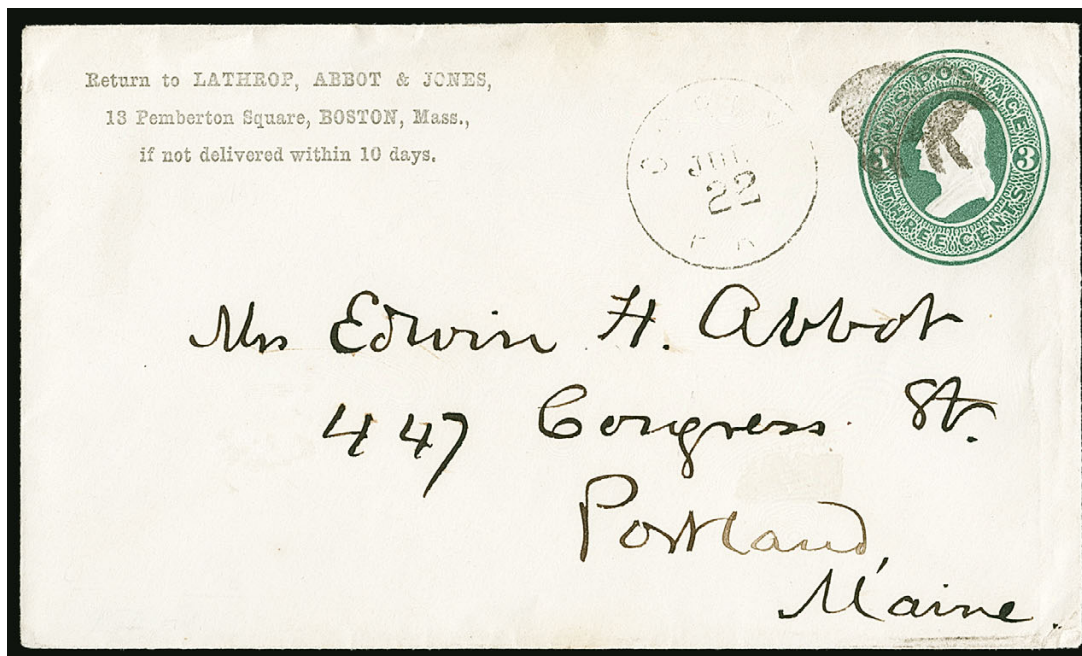 Return to LATHROP, ABBOT & JONES,
13 Pemberton Square, BOSTON, Mass.,
if not delivered within 10 days.
JUL
22
U.S. POSTAGE
3 3
THREE CENTS
Mrs Edwin H. Abbot
447 Congress St.
Portland,
Maine.